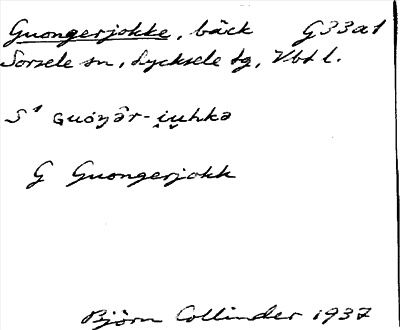 Guongerjokke, bäck G33a1
Sorsele sn, Lycksele tg, Vbt l.
S¹ ɢuoŋâr-i̯u̯hkə
G Guongerjokk
Björn Collinder 1937